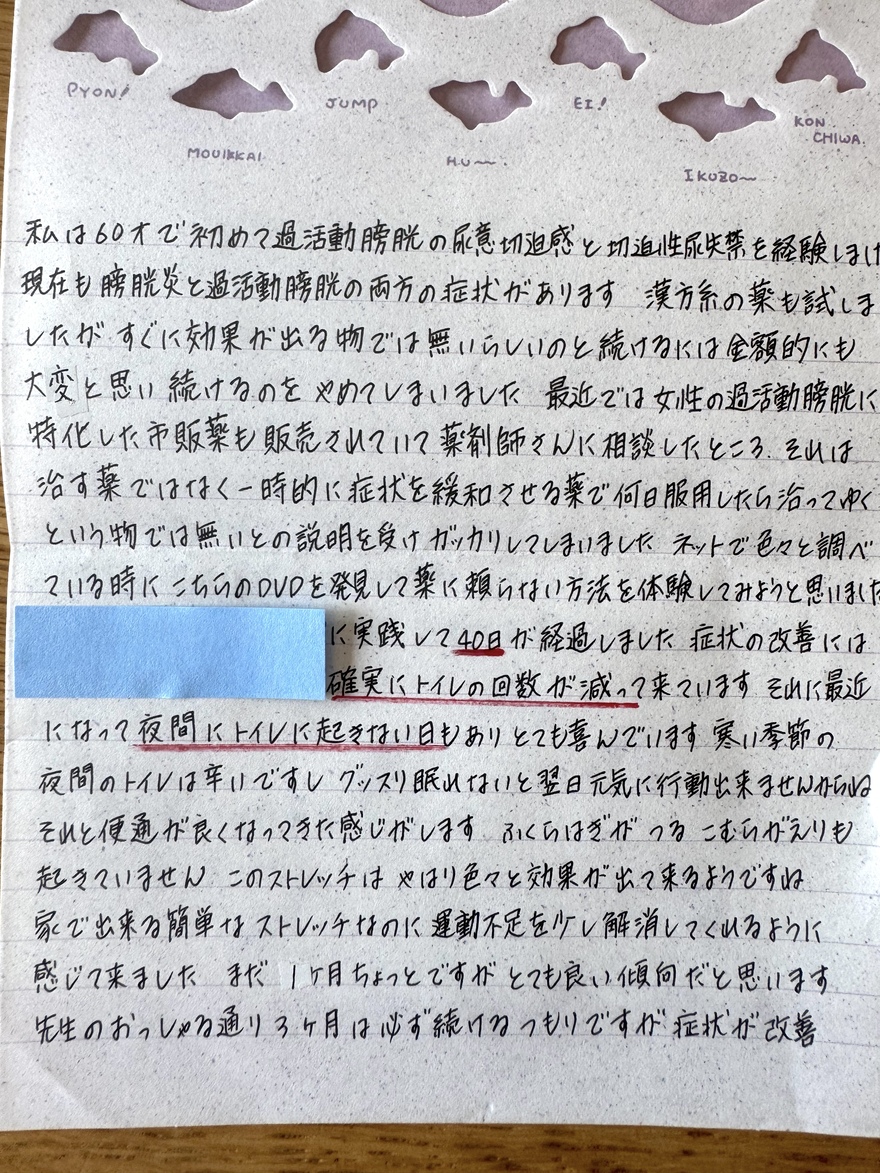 PYON!
JUMP
EI!
KON
CHIWA.
MOUIKKAI
HU〜
IKUZO〜
私は60才で初めて過活動膀胱の尿意切迫感と切迫性尿失禁を経験しまし
現在も膀胱炎と過活動膀胱の両方の症状があります 漢方系の薬も試しま
したが すぐに効果が出る物では無いらしいのと続けるには金額的にも
大変と思い続けるのをやめてしまいました 最近では女性の過活動膀胱に
特化した市販薬も販売されていて薬剤師さんに相談したところ、それは
治す薬ではなく一時的に症状を緩和させる薬で何日服用したら治ってゆく
という物では無いとの説明を受けガッカリしてしまいました ネットで色々と調べ
ている時にこちらのDVDを発見して薬に頼らない方法を体験してみようと思いました
に実践して40日が経過しました 症状の改善には
確実にトイレの回数が減って来ています それに最近
になって夜間にトイレに起きない日もあり とても喜んでいます 寒い季節の
夜間のトイレは辛いですし グッスリ眠れないと翌日元気に行動出来ませんからね
それと便通が良くなってきた感じがします ふくらはぎが つる こむらがえりも
起きていません このストレッチは やはり色々と効果が出て来るようですね
家で出来る簡単なストレッチなのに運動不足を少し解消してくれるように
感じて来ました まだ 1ヶ月ちょっとですが とても良い傾向だと思います
先生のおっしゃる通り3ヶ月は必ず続けるつもりですが 症状が改善